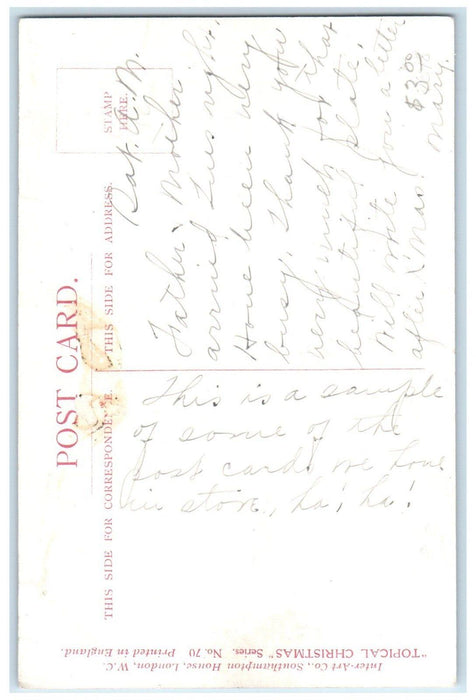 POST CARD.
THIS SIDE FOR CORRESPONDENCE.
THIS SIDE FOR ADDRESS.
STAMP
HERE.
Sat. A. M.
Father & Mother
arrived Tues night.
Have been very
busy, Thank you
very much for that
beautiful plate.
Will write you a letter
after Xmas.
Mary.
$3.00
This is a sample
of some of the
post cards we have
in store, ha! ha!
Inter-Art Co., Southampton House, London, W.C.
"TOPICAL CHRISTMAS" Series. No. 70 Printed in England.